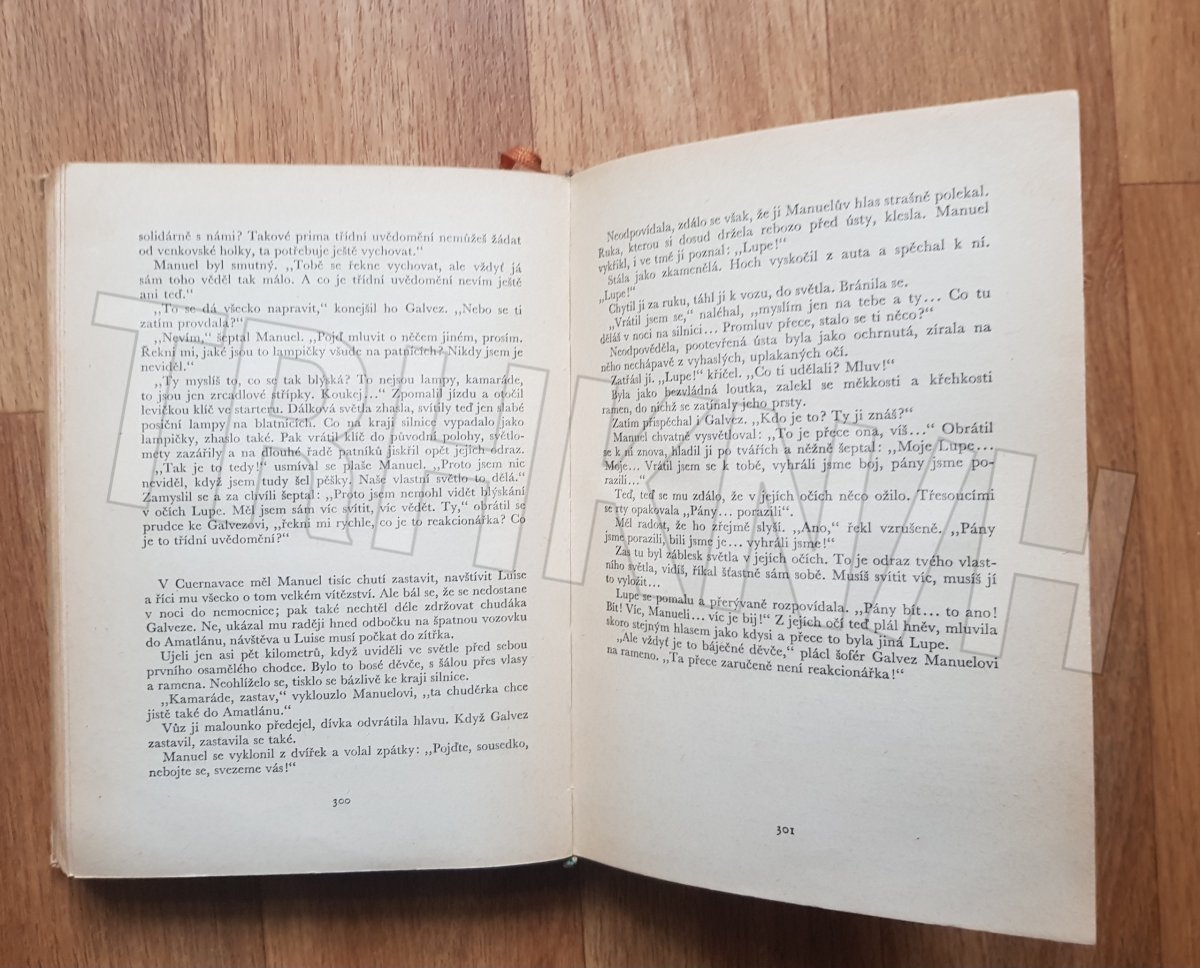 solidárně s námi? Takové prima třídní uvědomění nemůžeš žádat
od venkovské holky, ta potřebuje ještě vychovat.“
Manuel byl smutný. ,,Tobě se řekne vychovat, ale vždyť já
sám toho věděl tak málo. A co je třídní uvědomění nevím ještě
ani teď.“
,,To se dá všecko napravit,“ konejšil ho Galvez. ,,Nebo se ti
zatím provdala?“
,,Nevím,“ šeptal Manuel. ,,Pojď mluvit o něčem jiném, prosím.
Řekni mi, jaké jsou to lampičky všude na patnících? Nikdy jsem je
neviděl.“
,,Ty myslíš to, co se tak blýská? To nejsou lampy, kamaráde,
to jsou jen zrcadlové střípky. Koukej...“ Zpomalil jízdu a otočil
levičkou klíč ve starteru. Dálková světla zhasla, svítily teď jen slabé
posiční lampy na blatnících. Co na kraji silnice vypadalo jako
lampičky, zhaslo také. Pak vrátil klíč do původní polohy, světlo-
mety zazářily a na dlouhé řadě patníků jiskřil opět jejich odraz.
,,Tak je to tedy!“ usmíval se plaše Manuel. ,,Proto jsem nic
neviděl, když jsem tudy šel pěšky. Naše vlastní světlo to dělá.“
Zamyslil se a za chvíli šeptal: ,,Proto jsem nemohl vidět blýskání
v očích Lupe. Měl jsem sám víc svítit, víc vědět. Ty,“ obrátil se
prudce ke Galvezovi, ,,řekni mi rychle, co je to reakcionářka? Co
je to třídní uvědomění?“
V Cuernavace měl Manuel tisíc chutí zastavit, navštívit Luise
a říci mu všecko o tom velkém vítězství. Ale bál se, že se nedostane
v noci do nemocnice; pak také nechtěl déle zdržovat chudáka
Galveze. Ne, ukázal mu raději hned odbočku na špatnou vozovku
do Amatlánu, návštěva u Luise musí počkat do zítřka.
Ujeli jen asi pět kilometrů, když uviděli ve světle před sebou
prvního osamělého chodce. Bylo to bosé děvče, s šálou přes vlasy
a ramena. Neohlíželo se, tisklo se bázlivě ke kraji silnice.
,,Kamaráde, zastav,“ vyklouzlo Manuelovi, ,,ta chuděrka chce
jistě také do Amatlánu.“
Vůz ji malounko předejel, dívka odvrátila hlavu. Když Galvez
zastavil, zastavila se také.
Manuel se vyklonil z dvířek a volal zpátky: ,,Pojďte, sousedko,
nebojte se, svezeme vás!“
300
Neodpovídala, zdálo se však, že ji Manuelův hlas strašně polekal.
Ruka, kterou si dosud držela rebozo před ústy, klesla. Manuel
vykřikl, i ve tmě ji poznal: ,,Lupe!“
Stála jako zkamenělá. Hoch vyskočil z auta a spěchal k ní.
,,Lupe!“
Chytil ji za ruku, táhl ji k vozu, do světla. Bránila se.
,,Vrátil jsem se,“ naléhal, ,,myslím jen na tebe a ty... Co tu
děláš v noci na silnici... Promluv přece, stalo se ti něco?“
Neodpověděla, pootevřená ústa byla jako ochrnutá, zírala na
něho nechápavě z vyhaslých, uplakaných očí.
Zatřásl jí. ,,Lupe!“ křičel. ,,Co ti udělali? Mluv!“
Byla jako bezvládná loutka, zalekl se měkkosti a křehkosti
ramen, do nichž se zatínaly jeho prsty.
Zatím přispěchal i Galvez. ,,Kdo je to? Ty ji znáš?“
Manuel chvatně vysvětloval: ,,To je přece ona, víš...“ Obrátil
se k ní znova, hladil ji po tvářích a něžně šeptal: ,,Moje Lupe...
Moje... Vrátil jsem se k tobě, vyhráli jsme boj, pány jsme po-
razili...“
Teď, teď se mu zdálo, že v jejích očích něco ožilo. Třesoucími
se rty opakovala ,,Pány... porazili“.
Měl radost, že ho zřejmě slyší. ,,Ano,“ řekl vzrušeně. ,,Pány
jsme porazili, bili jsme je... vyhráli jsme!“
Zas tu byl záblesk světla v jejích očích. To je odraz tvého vlast-
ního světla, vidíš, říkal šťastně sám sobě. Musíš svítit víc, musíš jí
to vyložit...
Lupe se pomalu a přerývaně rozpovídala. ,,Pány bít... to ano!
Bít! Víc, Manueli... víc je bij!“ Z jejích očí teď plál hněv, mluvila
skoro stejným hlasem jako kdysi a přece to byla jiná Lupe.
,,Ale vždyť je to báječné děvče,“ plácl šofér Galvez Manuelovi
na rameno. ,,Ta přece zaručeně není reakcionářka!“
301
TRHKNIH